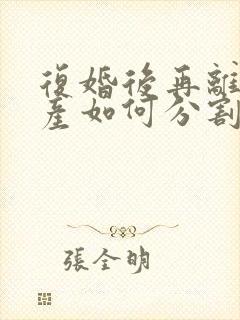 復婚後再離
產如何分割
張全明